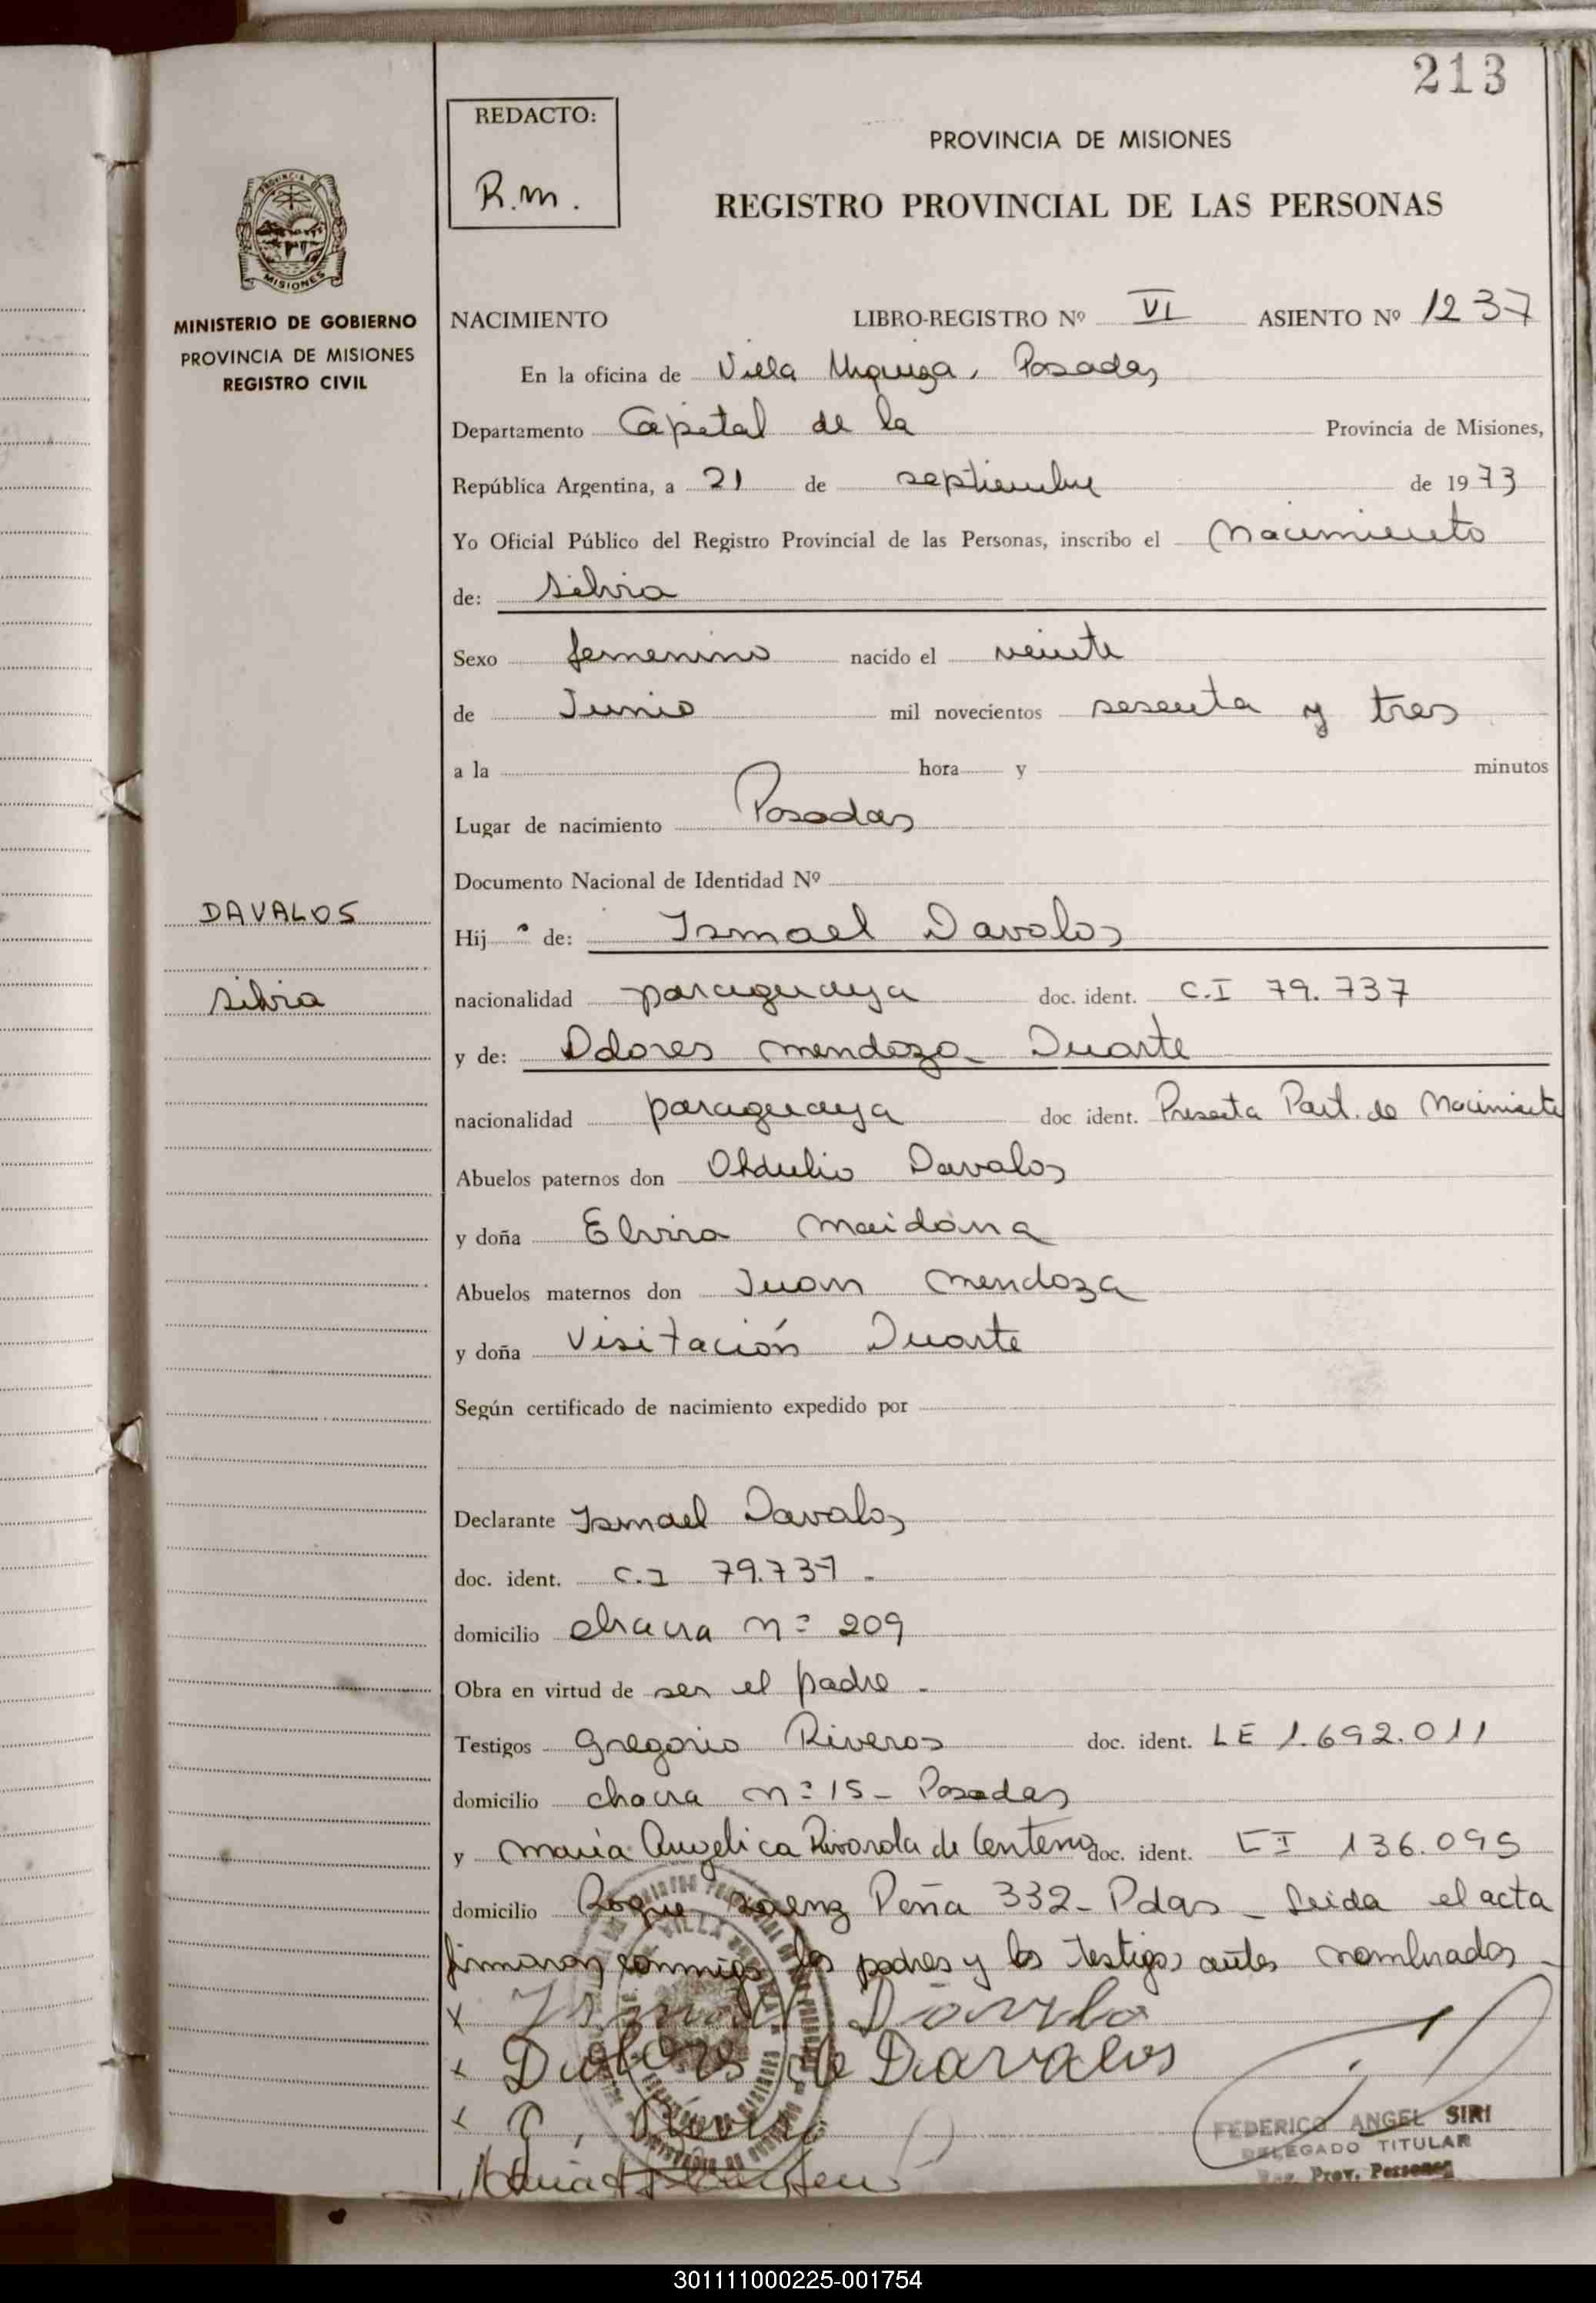 213
REDACTO:
R.m.
PROVINCIA DE MISIONES
REGISTRO PROVINCIAL DE LAS PERSONAS
PROVINCIA DE
MISIONES
MINISTERIO DE GOBIERNO
PROVINCIA DE MISIONES
REGISTRO CIVIL
NACIMIENTO LIBRO-REGISTRO Nº VI ASIENTO Nº 1237
En la oficina de Villa Urquiza, Posadas
Departamento Capital de la Provincia de Misiones,
República Argentina, a 21 de septiembre de 1973
Yo Oficial Público del Registro Provincial de las Personas, inscribo el Nacimiento
de: Silvia
Sexo femenino nacido el veinte
de Junio mil novecientos sesenta y tres
a la hora y minutos
Lugar de nacimiento Posadas
Documento Nacional de Identidad Nº
DAVALOS
Hij a de: Ismael Davalos
Silvia
nacionalidad paraguaya doc. ident. C.I 79.737
y de: Dolores Mendoza Duarte
nacionalidad paraguaya doc ident. Presenta Part. de Nacimiento
Abuelos paternos don Obdulio Davalos
y doña Elvira Maidana
Abuelos maternos don Juan Mendoza
y doña Visitación Duarte
Según certificado de nacimiento expedido por
Declarante Ismael Davalos
doc. ident. C.I 79.737 -
domicilio chacra nº 209
Obra en virtud de ser el padre -
Testigos Gregorio Riveros doc. ident. LE 1.692.011
domicilio chacra nº 15 - Posadas
y María Angelica Rivarola de Centeno doc. ident. CI 136.095
domicilio Roque Saenz Peña 332 - Pdas - Leida el acta
firmaron conmigo los padres y los testigos antes nombrados -
x Ismael Davalo
x Dolores de Davalos
x
FEDERICO ANGEL SIRI
DELEGADO TITULAR
Reg. Prov. Personas
301111000225-001754